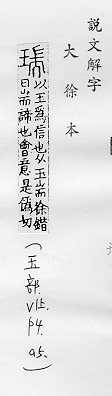 說文解字
大徐本
瑞
以玉為信也从玉耑徐鍇
曰耑諦也會意是偽切
(玉部. p4. a5.)